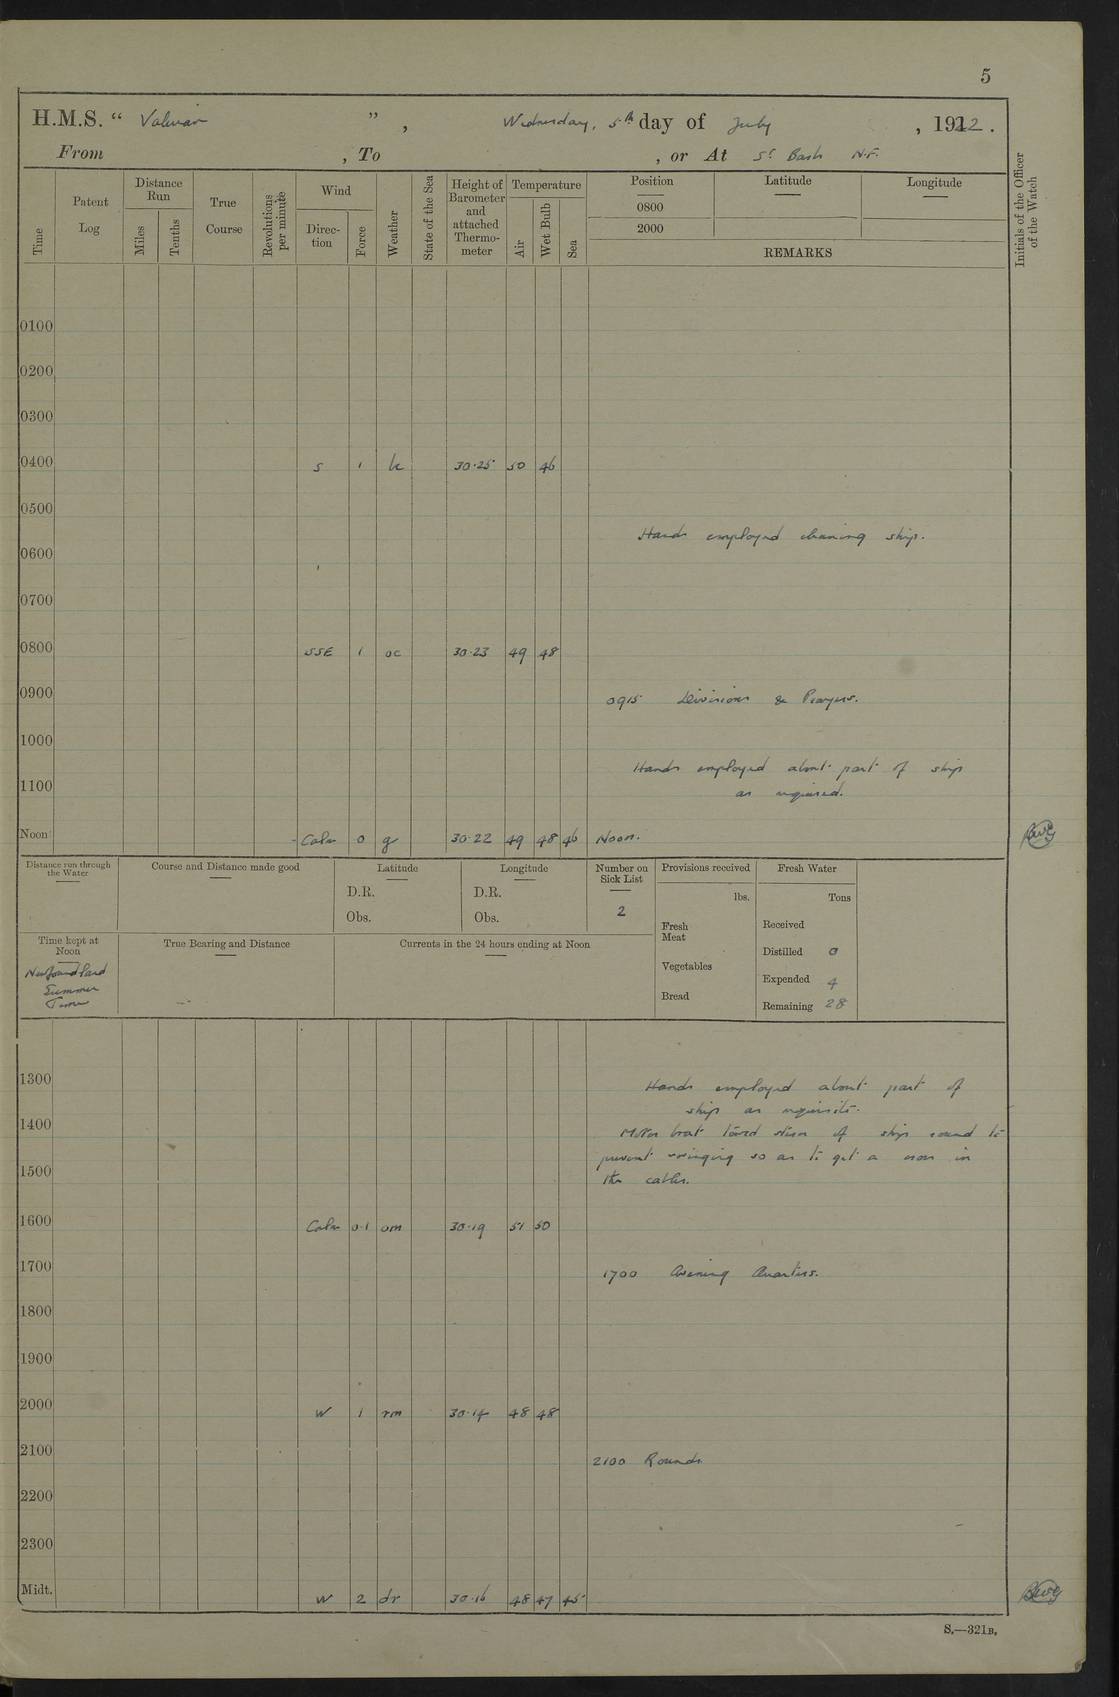 5
H.M.S. “ Valerian ” , Wednesday, 5th day of July , 1922.
From , To , or At St Barbe N.F.
Time
Patent Log
Distance Run
Miles
Tenths
True Course
Revolutions per minute
Wind
Direc-tion
Force
Weather
State of the Sea
Height of Barometer and attached Thermo-meter
Temperature
Air
Wet Bulb
Sea
Position
0800
2000
Latitude
Longitude
REMARKS
Initials of the Officer of the Watch
0100
0200
0300
0400 S 1 b 30.25 50 46
0500
Hands employed cleaning ship.
0600
0700
0800 SSE 1 oc 30.23 49 48
0900
0915 Divisions & Prayers.
1000
Hands employed about part of ship
1100
as required.
Noon Calm 0 g 30.22 49 48 46 Noon.
Distance run through the Water
Course and Distance made good
Latitude
D.R.
Obs.
Longitude
D.R.
Obs.
Number on Sick List
2
Provisions received
lbs.
Fresh Meat
Vegetables
Bread
Fresh Water
Tons
Received
Distilled 0
Expended 4
Remaining 28
Time kept at Noon
Newfoundland
Summer
Time
True Bearing and Distance
Currents in the 24 hours ending at Noon
1300
Hands employed about part of
ship as requisite.
1400
Motor boat towed stern of ship round to
prevent swinging so as to get a cross in
1500
the cables.
1600 Calm 0.1 om 30.19 51 50
1700
1700 Evening Quarters.
1800
1900
2000 W 1 rm 30.14 48 48
2100
2100 Rounds
2200
2300
Midt. W 2 dr 30.16 48 47 45
S.—321B.